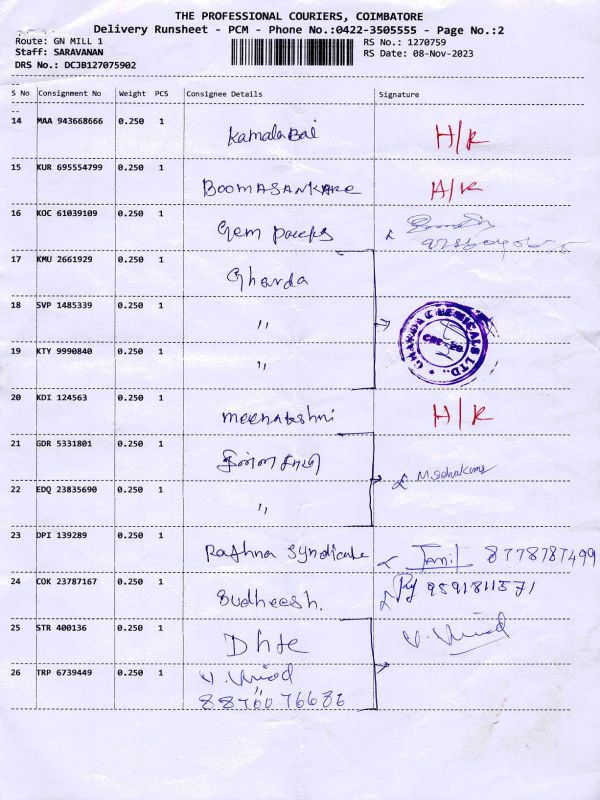 THE PROFESSIONAL COURIERS, COIMBATORE
Delivery Runsheet - PCM - Phone No.:0422-3505555 - Page No.:2
Route: GN MILL 1 RS No.: 1270759
Staff: SARAVANAN RS Date: 08-Nov-2023
DRS No.: DCJB127075902
S No Consignment No Weight PCS Consignee Details Signature
14 MAA 943668666 0.250 1 Kamala Bai H/R
15 KUR 695554799 0.250 1 BOOMASANKARE H/R
16 KOC 61039109 0.250 1 Gem
17 KMU 2661929 0.250 1 Gharda
18 SVP 1485339 0.250 1 ,,
GHARDA CHEMICALS LTD.,
19 KTY 9990840 0.250 1 ,,
20 KDI 124563 0.250 1 meenatchni H/R
21 GDR 5331801 0.250 1
22 EDQ 23835690 0.250 1 ,,
23 DPI 139289 0.250 1 Rathna Syndicate Tamil 8778787499
24 COK 23787167 0.250 1 Sudheesh. 9591811571
25 STR 400136 0.250 1 Dhte V. Vinod
26 TRP 6739449 0.250 1 V. Vinod
,,
8876076686